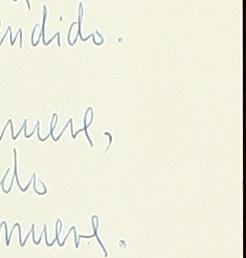 ndido.
muere,
do
muere.